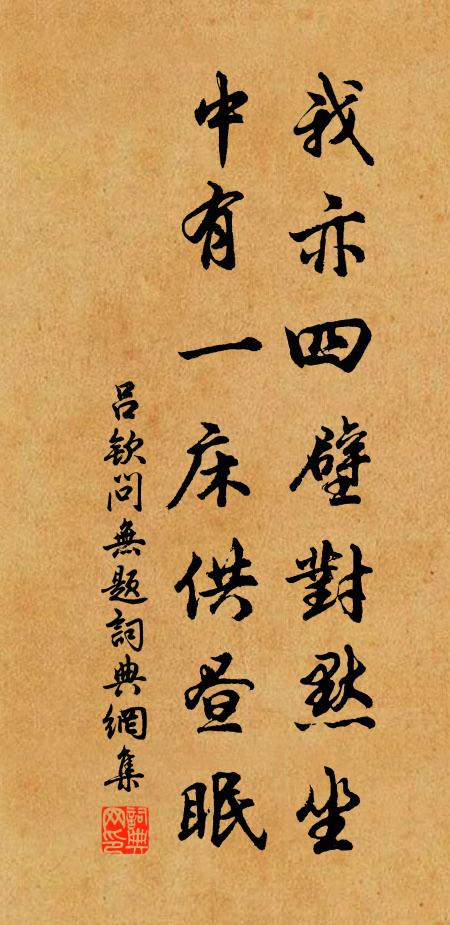 我亦四壁對默坐
中有一床供昼眠
吕钦问無题詞典網集
詞典网印